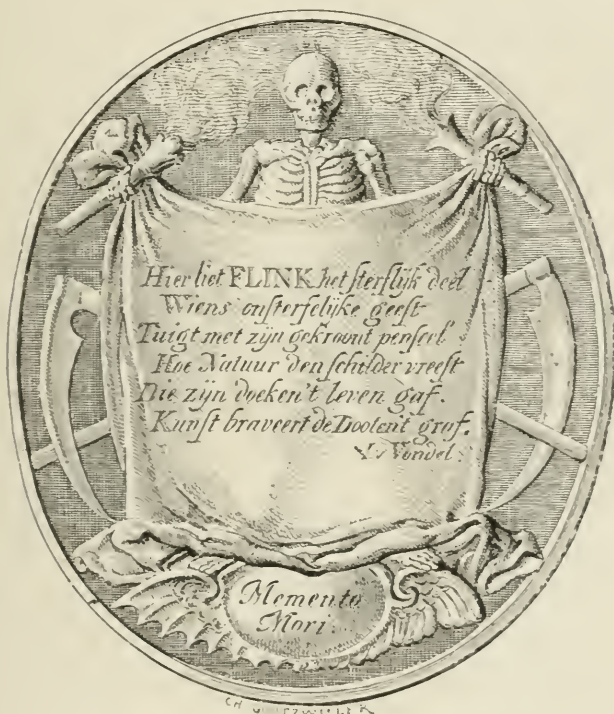 Hier liet FLINK het sterflijk deel
Wiens onsterfelijke geest
Tuigt met zijn gekroont penseel
Hoe Natuur den schilder vreest
Die zijn doeken't leven gaf.
Kunst braveert de Doot en't graf.
Vondel.
Memento
Mori.